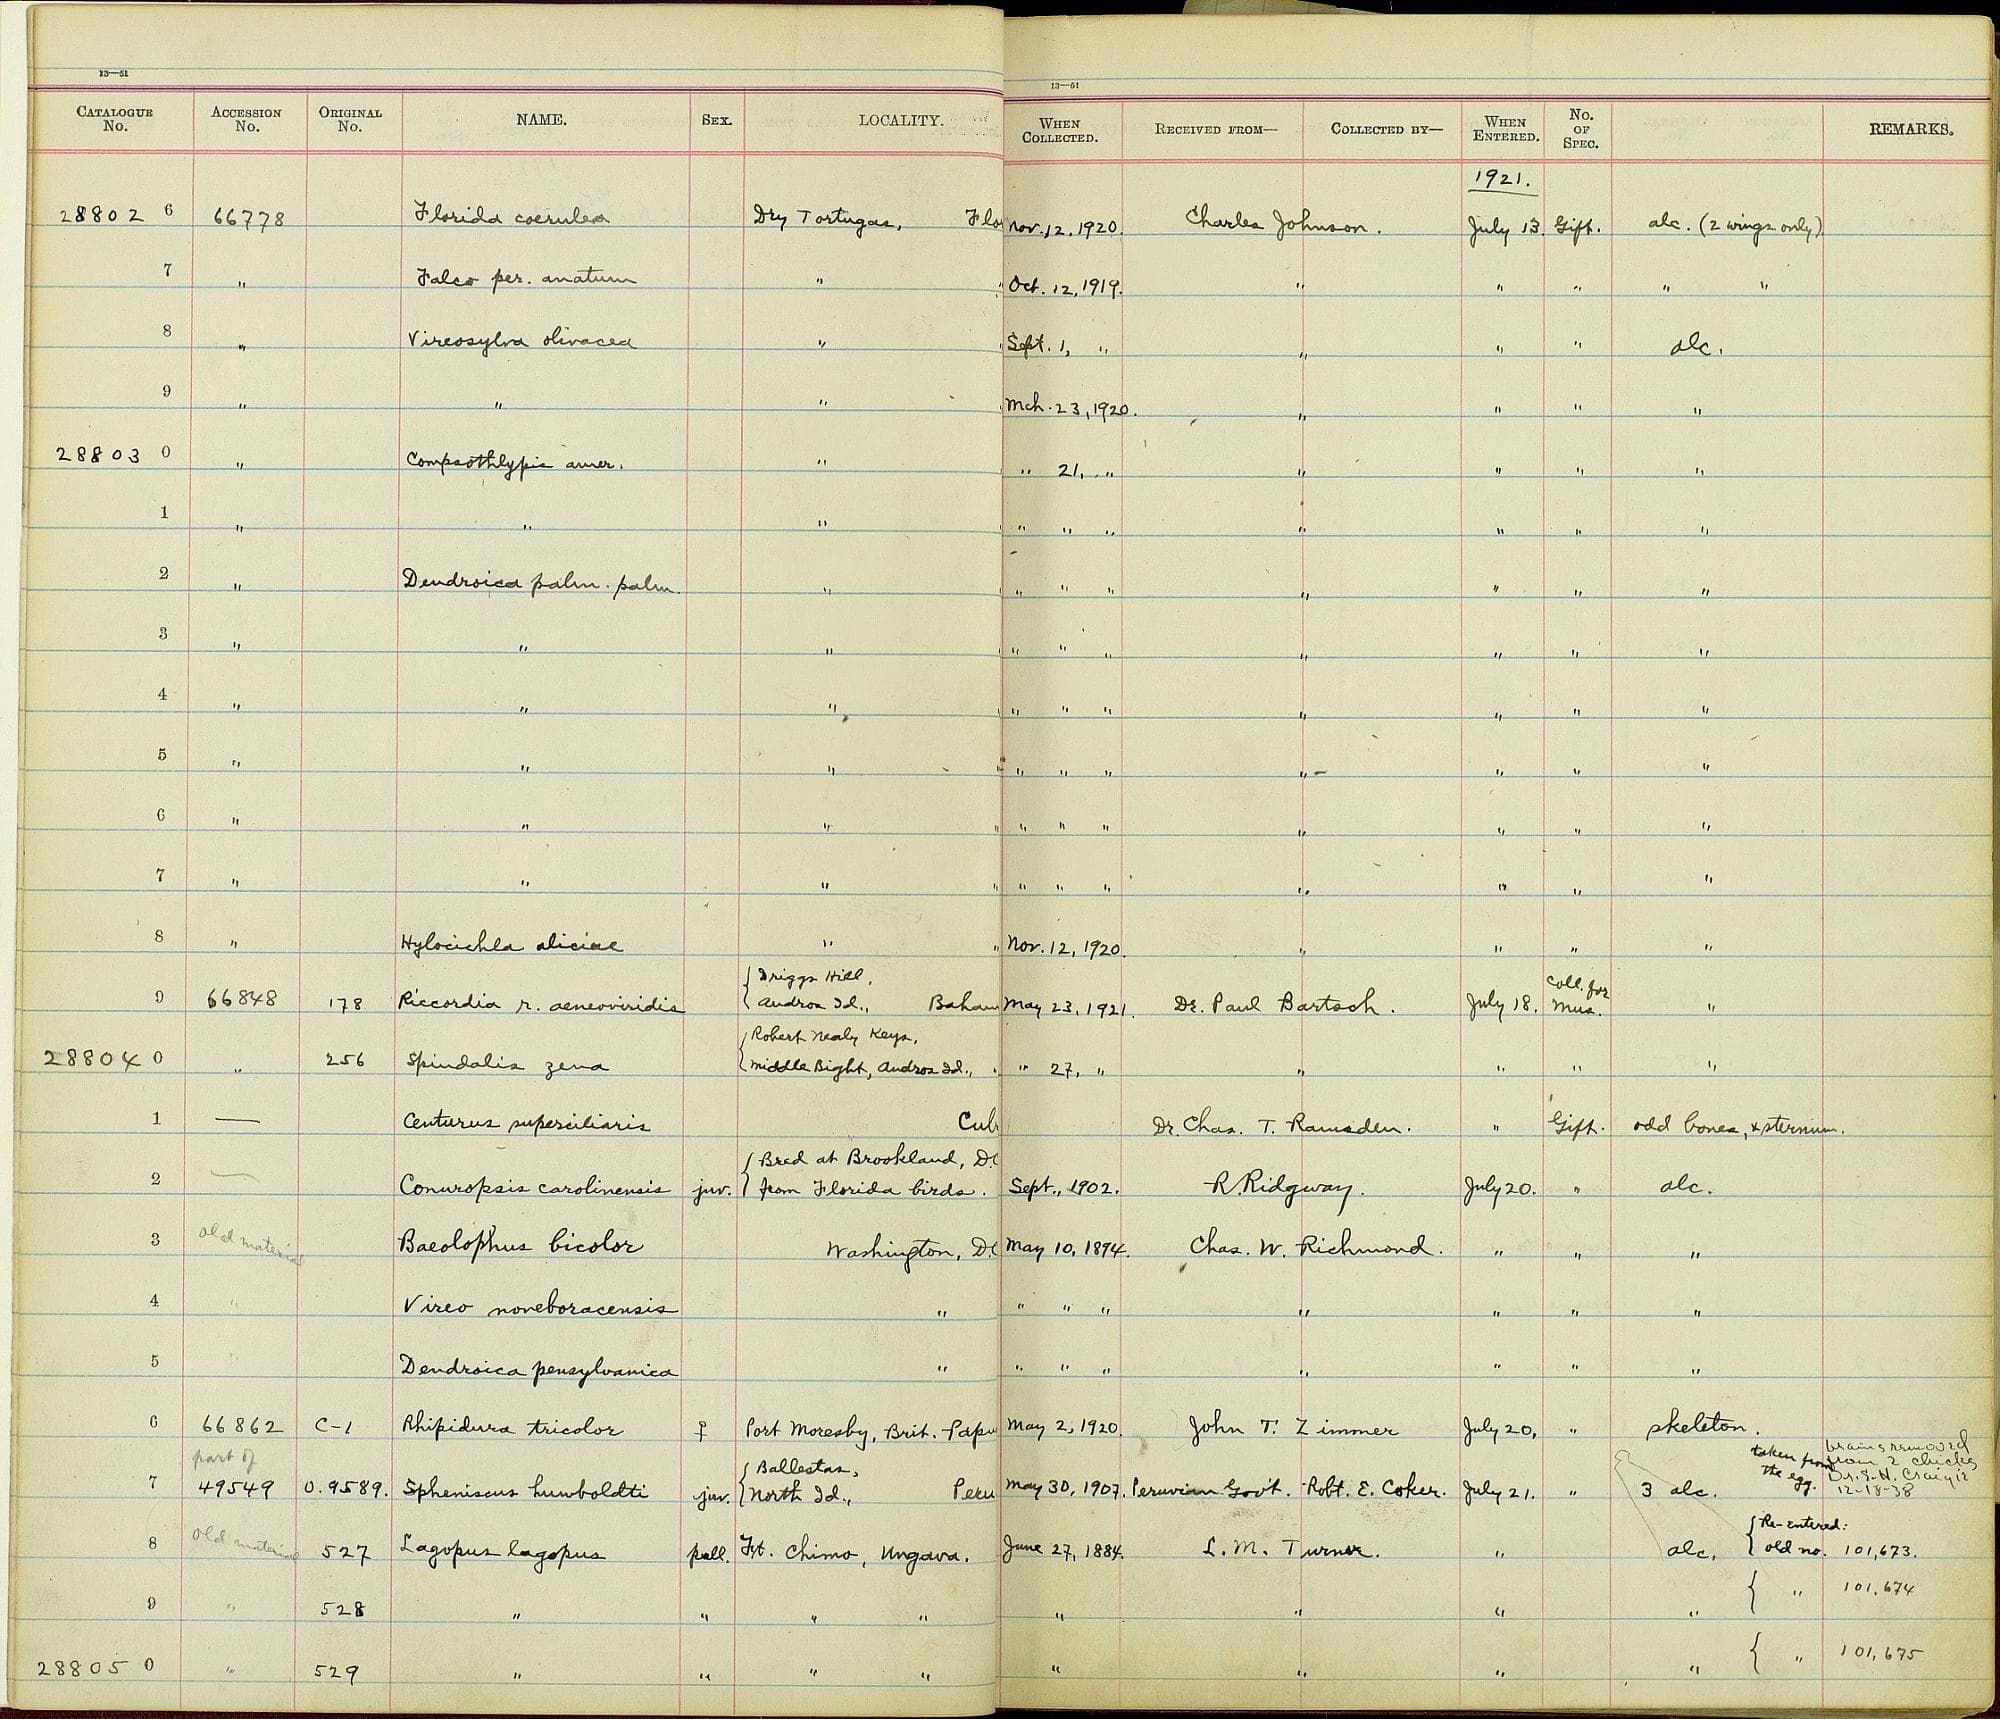 13—51
13—51
CATALOGUE No. ACCESSION No. ORIGINAL No. NAME. SEX. LOCALITY. WHEN COLLECTED. RECEIVED FROM— COLLECTED BY— WHEN ENTERED. No. OF SPEC. REMARKS.
1921.
28802 6 66778 Florida coerulea Dry Tortugas, Flo Nov. 12, 1920. Charles Johnson. July 13. Gift. alc. (2 wings only)
7 " Falco per. anatum " " Oct. 12, 1919. " " " " "
8 " Vireosylva olivacea " " Sept. 1, " " " " alc.
9 " " " " Mch. 23, 1920. " " " "
28803 0 " Compsothlypis amer. " " 21, " " " " "
1 " " " " " " " " " " "
2 " Dendroica palm. palm. " " " " " " " "
3 " " " " " " " " " " "
4 " " " " " " " " " " "
5 " " " " " " " " " " "
6 " " " " " " " " " " "
7 " " " " " " " " " " "
8 " Hylocichla aliciae " " Nov. 12, 1920. " " " "
9 66848 178 Riccordia r. aeneoviridis { Driggs Hill, Andros Id., Baham May 23, 1921. Dr. Paul Bartsch. July 18. Coll. for Mus. "
28804 0 " 256 Spindalis zena { Robert Nealy Keys, Middle Bight, Andros Id., " " 27, " " " " "
1 — Centurus superciliaris Cub Dr. Chas. T. Ramsden. " Gift. odd bones, & sternum.
2 — Conuropsis carolinensis juv. { Bred at Brookland, D.C from Florida birds. Sept., 1902. R. Ridgway. July 20. " alc.
3 Old material Baeolophus bicolor Washington, DC May 10, 1894. Chas. W. Richmond. " " "
4 " Vireo noveboracensis " " " " " " " "
5 " Dendroica pensylvanica " " " " " " " "
6 66862 C-1 Rhipidura tricolor ♀ Port Moresby, Brit. Papu May 2, 1920. John T. Zimmer July 20, " skeleton.
7 part of 49549 O.9589. Spheniscus humboldti juv. { Ballestas, North Id., Peru May 30, 1907. Peruvian Gov't. Robt. E. Coker. July 21. " 3 alc. taken from the egg. brains removed from 2 chicks Dr. E. H. Craigie 12-18-38
8 Old material 527 Lagopus lagopus pull. Ft. Chimo, Ungava. June 27, 1884. L. M. Turner. " alc. { Re-entered: old no. 101,673.
9 " 528 " " " " " " " " { " 101,674
28805 0 " 529 " " " " " " " " { " 101,675